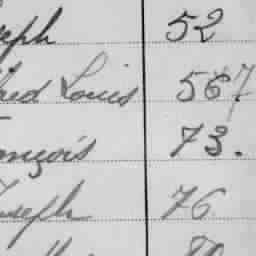 seph 52
red Louis 567
ançois 73.
Joseph 76